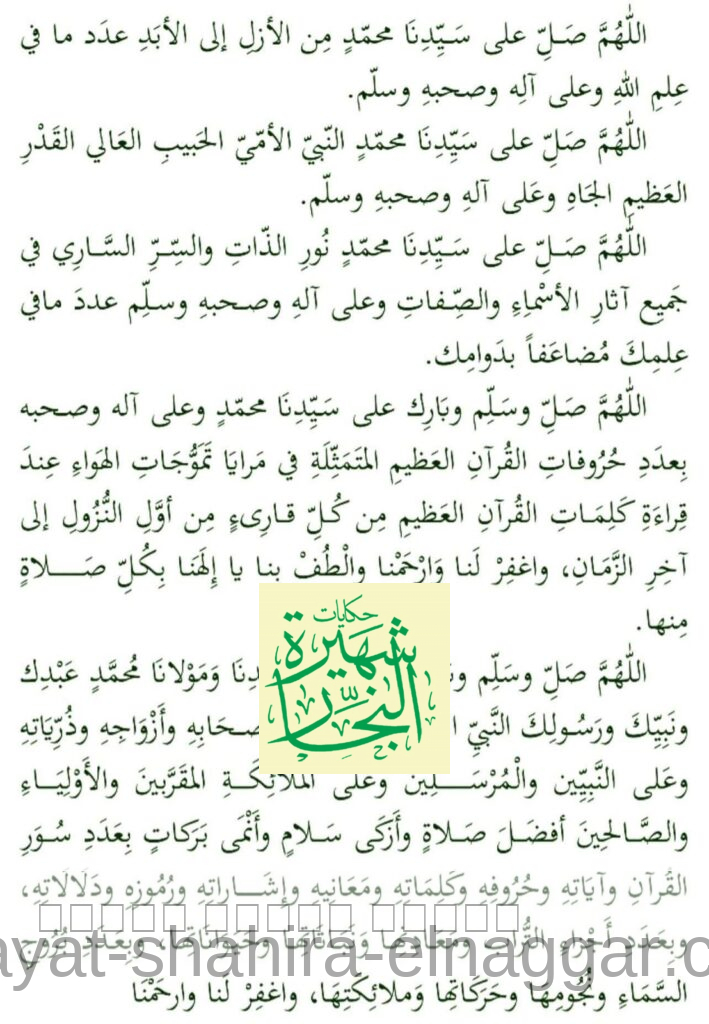 اللّٰهُمَّ صَلِّ على سَيِّدِنَا محمّدٍ مِن الأزلِ إلى الأبَدِ عدَد ما في
عِلمِ اللهِ وعلى آلِه وصحبهِ وسلّم.
اللّٰهُمَّ صَلِّ على سَيِّدِنَا محمّدٍ النّبيّ الأمّيّ الحَبيبِ العَالي القَدْرِ
العَظيمِ الجَاهِ وعَلى آلهِ وصحبهِ وسلّم.
اللّٰهُمَّ صَلِّ على سَيِّدِنَا محمّدٍ نُورِ الذّاتِ والسِّرِّ السَّارِي في
جَميع آثارِ الأسْماءِ والصِّفاتِ وعلى آلهِ وصحبهِ وسلِّم عددَ مافي
عِلمِكَ مُضاعَفاً بدَوامِك.
اللّٰهُمَّ صَلِّ وسَلِّم وبَارِك على سَيِّدِنَا محمّدٍ وعلى آله وصحبه
بِعدَدِ حُرُوفاتِ القُرآنِ العَظيمِ المتَمَثِّلَةِ في مَرايَا تَمَوُّجَاتِ الهَواءِ عِندَ
قِراءَةِ كَلِمَاتِ القُرآنِ العَظيمِ مِن كُلِّ قارِىءٍ مِن أوَّلِ النُّزُولِ إلى
آخِرِ الزَّمَانِ، واغفِرْ لَنا وَارْحَمْنا والْطُفْ بنا يا إلَهَنا بِكُلِّ صَلاةٍ
مِنها.
اللّٰهُمَّ صَلِّ وسَلِّم وَمَوْلانَا مُحمَّدٍ عَبْدِك
ونَبِيِّكَ ورَسُولِكَ النَّبيِّ وأَزْوَاجِهِ وذُرِّيَاتِهِ
وعَلى النَّبِيِّين والْمُرْسَلِين وعَلى الملائِكَةِ المقَرَّبينَ والأَوْلِيَاءِ
والصَّالحِينَ أفضَلَ صَلاةٍ وأَزكَى سَلامٍ وأَنْمَى بَرَكاتٍ بِعَدَدِ سُوَرِ
القُرآنِ وآيَاتِهِ وحُرُوفِهِ وكَلِمَاتِهِ ومَعَانِيهِ وإشَارَاتِهِ ورُمُوزِهِ ودَلَالَاتِهِ،
وبِعَدَدِ أَجْزاءِ التُّرابِ ومَعَادِنِها ونَبَاتَاتِها وحَيْوَانَاتِها، وبِعَدَدِ بُرُوجِ
السَّمَاءِ ونُجُومِها وحَرَكَاتِها وَملائِكَتِهَا، واغفِرْ لَنا وارحَمْنَا
حكايات
شهيرة
النجار
ayat-shahira-elnaggar.c